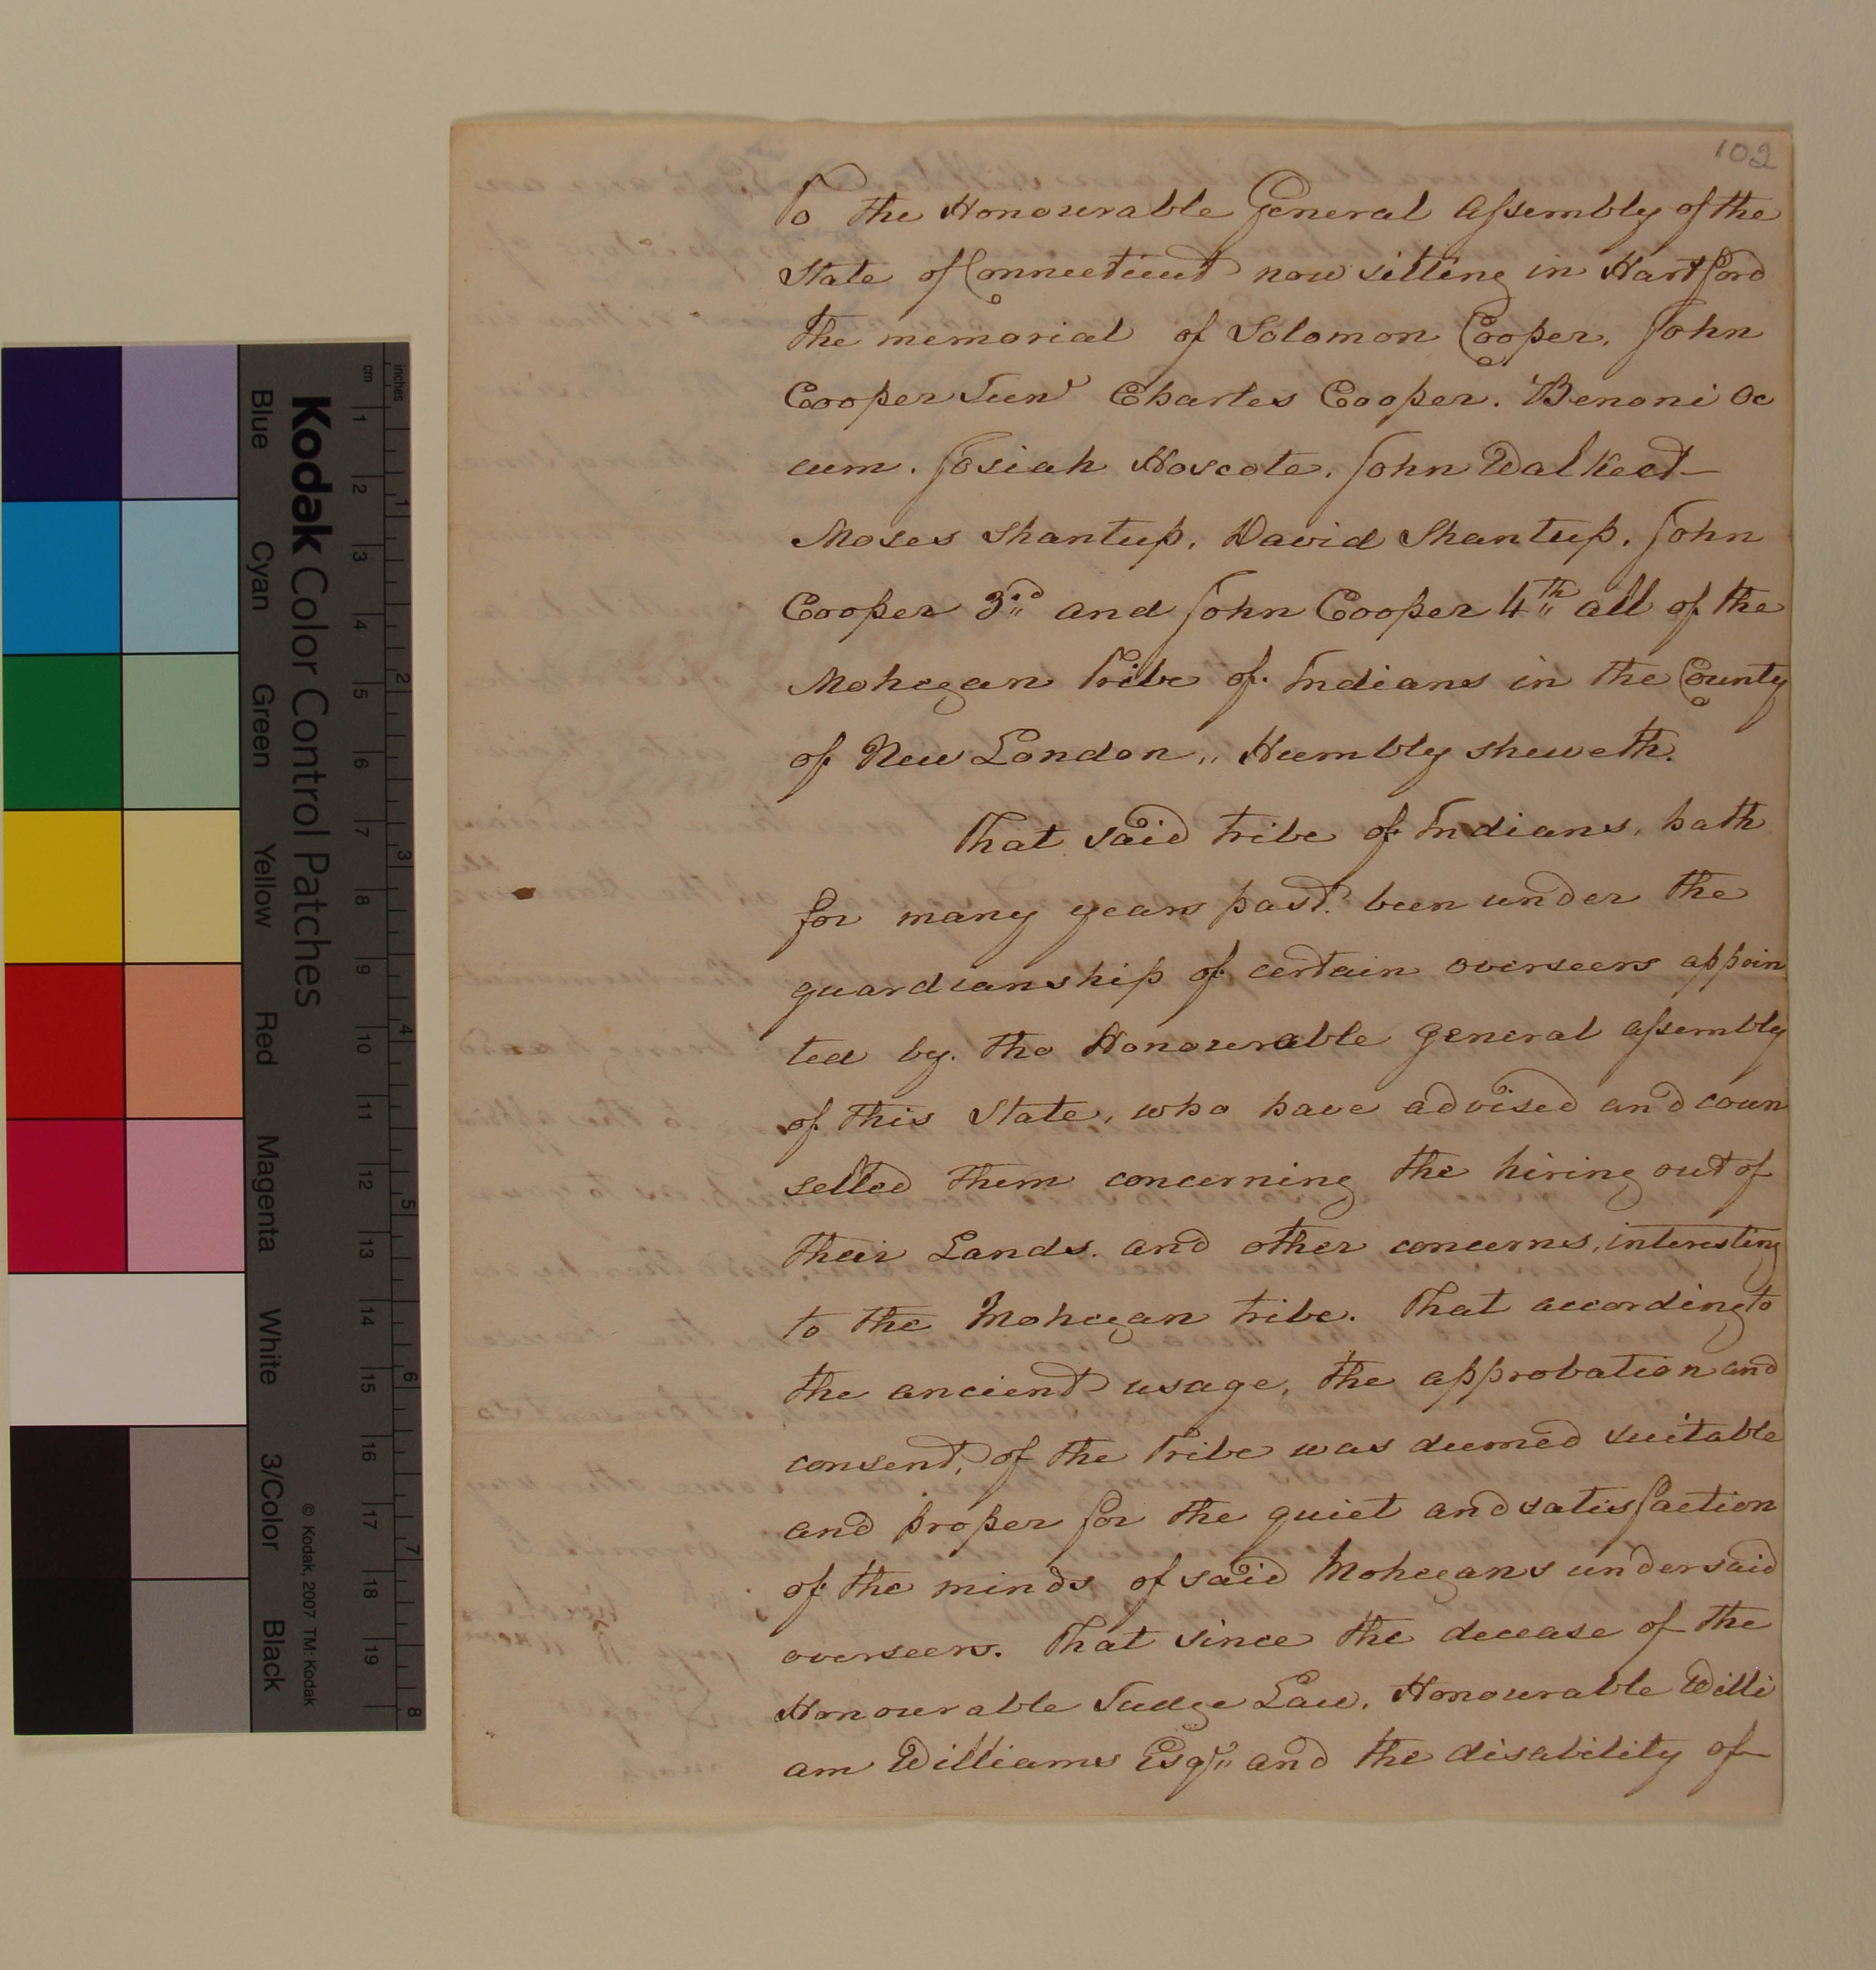 102
To the Honourable General Assembly of the
State of Connecticut now sitting in Hartford
The memorial of Solomon Cooper, John
Cooper Junr Charles Cooper. Benoni Oc
cum. Josiah Hoscote, John Walkeet
Moses Shantup, David Shantup, John
Cooper 3rd and John Cooper 4th all of the
Mohegan Tribe of Indians in the County
of New London,, Humbly sheweth.
That said tribe of Indians, hath
for many years past. been under the
guardianship of certain overseers appoin
ted by the Honourable general assembly
of this State, who have advised and coun
selled them concerning the hiring out of
their Lands. and other concerns, interesting
to the Mohegan tribe. That according to
the ancient usage, the approbation and
consent, of the Tribe was deemed suitable
and proper for the quiet and satisfaction
of the minds of said Mohegans under said
overseers. That since the decease of the
Honourable Judge Law, Honourable Willi
am Williams Esqr and the disability of
Kodak Color Control Patches
© Kodak, 2007 TM: Kodak
Blue Cyan Green Yellow Red Magenta White 3/Color Black
cm 1 2 3 4 5 6 7 8 9 10 11 12 13 14 15 16 17 18 19
inches 1 2 3 4 5 6 7 8